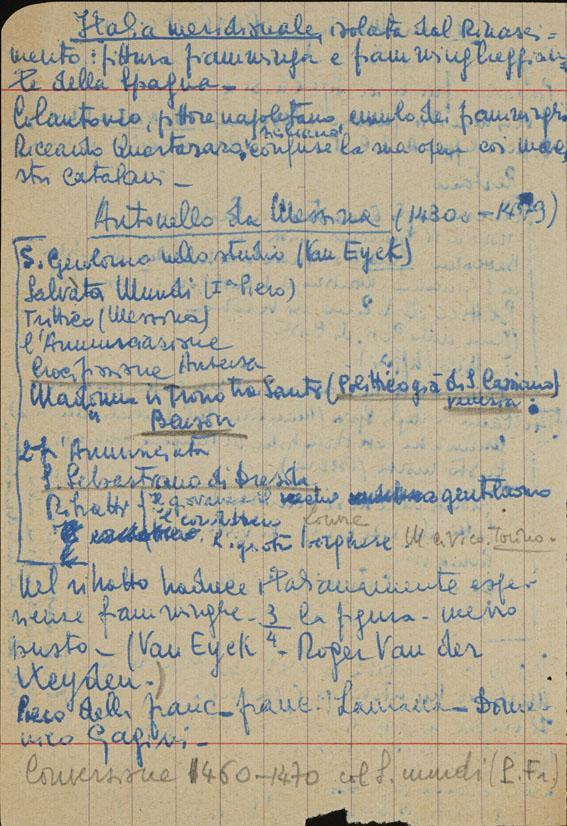 Italia meridionale, isolata dal Rinasci=
mento: pittura fiamminga e fiammingheggian=
te della Spagna -
Colantonio, pittore napoletano, emulo dei fiamminghi
Riccardo Quartararo, siciliano, confuse la sua opera coi mae
stri catalani -
Antonello da Messina (1430 - 1479)
S. Gerolamo nello studio (Van Eyck)
Salvator Mundi (Iª Piero)
Trittico (Messina)
l'Annunciazione
Crocifissione Anversa
Madonna in trono tra Santi (Politticogià di S. Cassiano)
" Benson Venezia
l'Annunciata
S. Sebastiano di Dresda
Ritratti Il giovane Il vecchio gentiluomo
Il condottiero Louvre
Il ignoto borghese M civico. Torino.
Nel ritratto traduce italianamente espe-
rienze fiamminghe - 3/4 la figura - mezzo
busto - (Van Eyck - Roger Van der
Weyden -)
Piero della franc - franc. Laurana - Dome
nico Gagini -
Conversione 1460-1470 col S. mundi (P. Fr.)